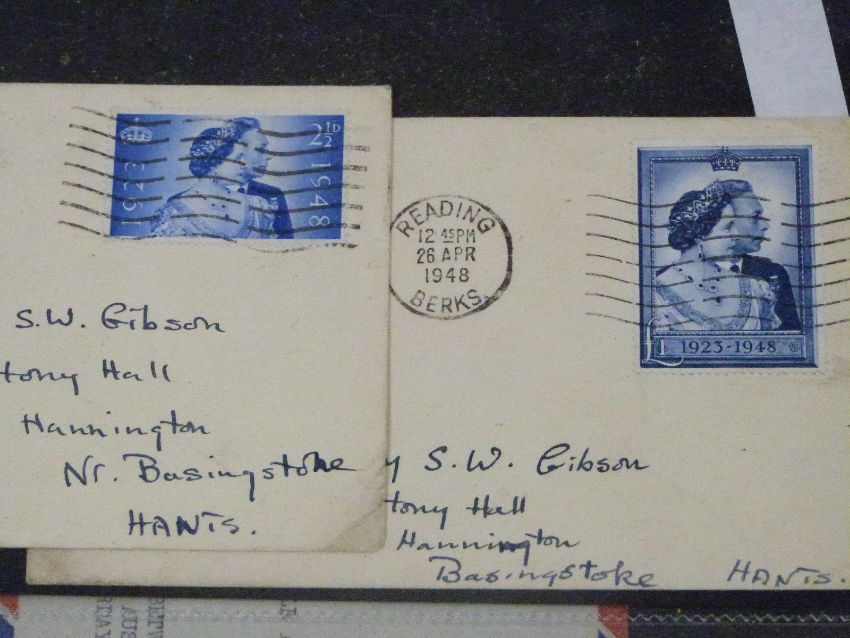 1923
2½D
1948
S.W. Gibson
tony Hall
Hannington
Nr. Basingstoke
HANTS.
READING
12 45 PM
26 APR
1948
BERKS.
£1 1923-1948
y S.W. Gibson
tony Hall
Hannington
Basingstoke HANTS.